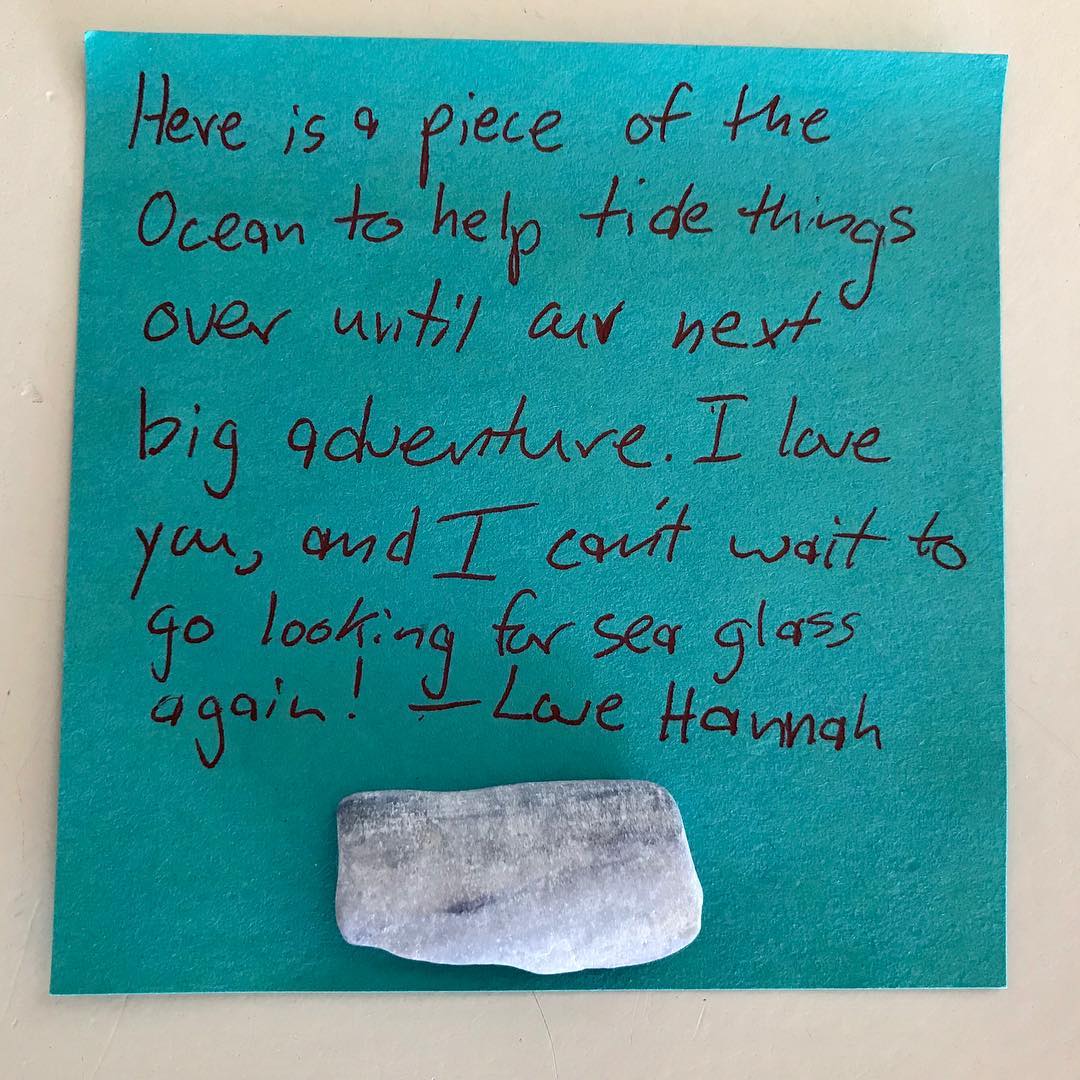 Here is a piece of the
Ocean to help tide things
over until our next
big adventure. I love
you, and I can't wait to
go looking for sea glass
again! — Love Hannah